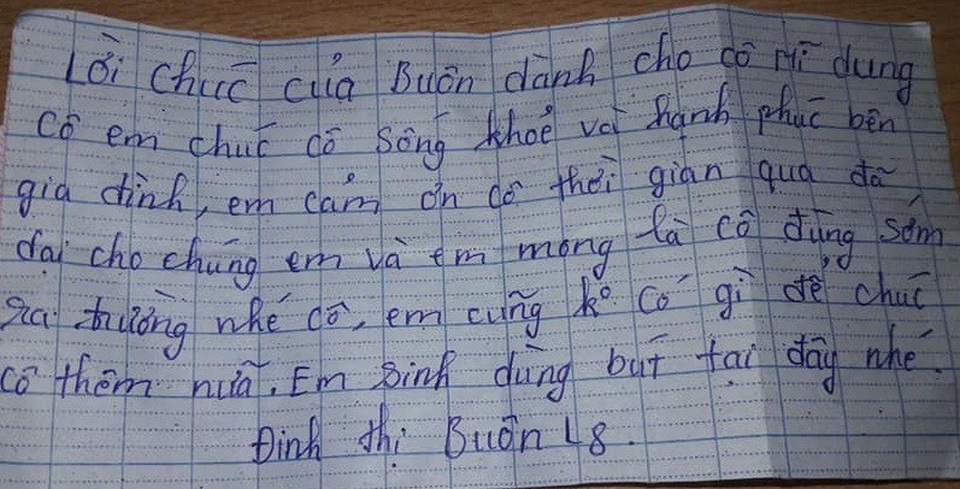 Lời chúc của Buôn dành cho cô Mĩ dung
cô em chuć cô Sống khoẻ và hạnh phúc bên
gia đình, em cảm ơn cô thời gian qua đã
dại cho chúng em và em mong là cô đừng sớm
ra trường nhé cô, em cũng ko có gì để chúc
cô thêm nữa. Em xinh dừng bút tại đây nhé.
Đinh thị Buôn L8.